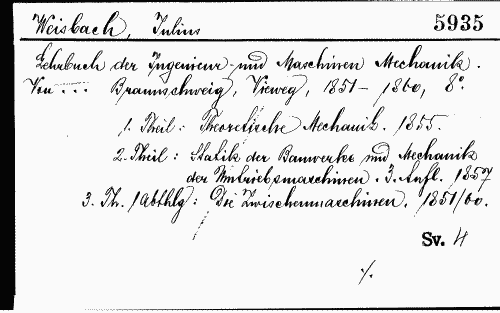 Weisbach, Julius 5935
Lehrbuch der Ingenieur- und Maschinen Mechanik.
Von ... Braunschweig, Vieweg, 1851–1860, 8°.
1. Theil: Theoretische Mechanik. 1855.
2. Theil: Statik der Bauwerke und Mechanik
der Umtriebsmaschinen. 3. Aufl. 1857
3. Th. 1 Abthlg: Die Zwischenmaschinen. 1851/60.
Sv. 4
./.